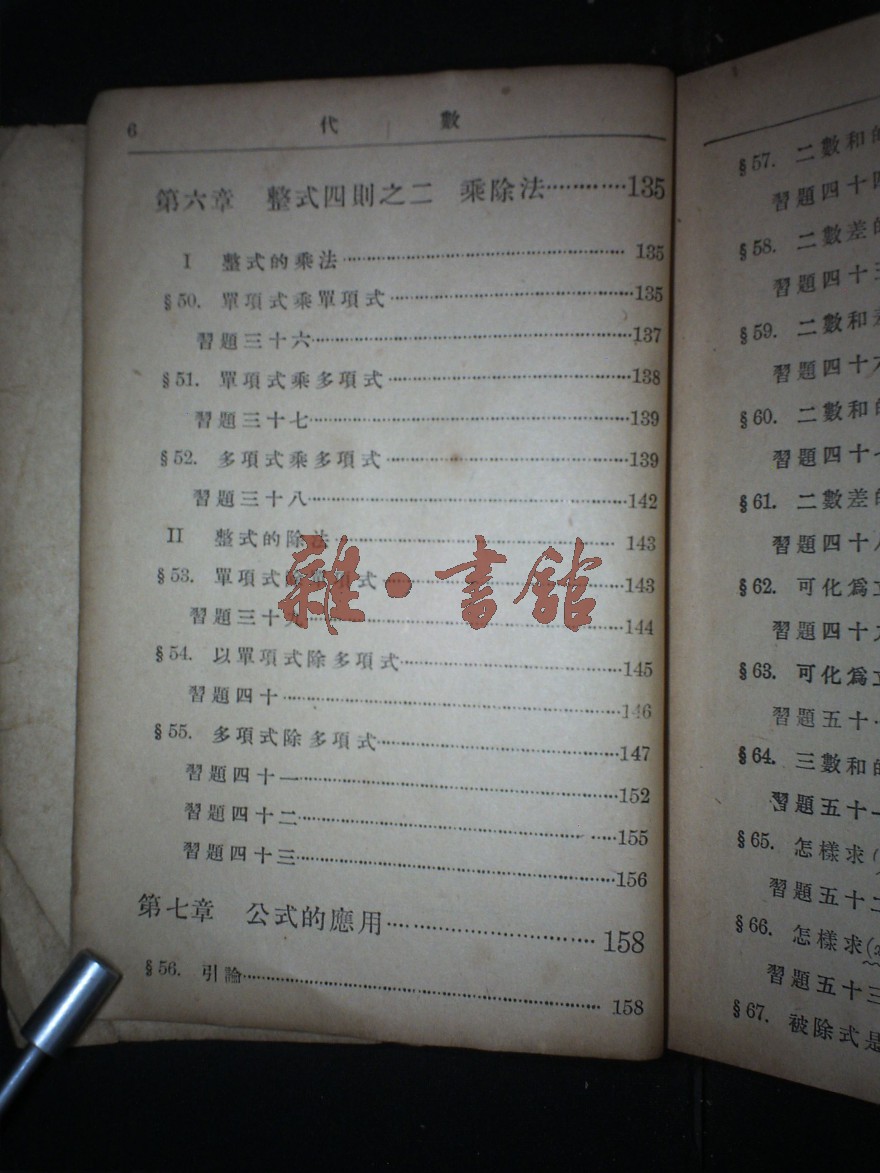 6 代 數
第六章 整式四則之二 乘除法············135
I 整式的乘法············135
§50. 單項式乘單項式············135
習題三十六············137
§51. 單項式乘多項式············138
習題三十七············139
§52. 多項式乘多項式············139
習題三十八············142
II 整式的除法············143
§53. 單項式 單項式············143
習題三十九············144
§54. 以單項式除多項式············145
習題四十············146
§55. 多項式除多項式············147
習題四十一············152
習題四十二············155
習題四十三············156
第七章 公式的應用············158
§56. 引論············158
雜·書館
§57. 二數和的
習題四十四
§58. 二數差的
習題四十五
§59. 二數和差
習題四十六
§60. 二數和的
習題四十七
§61. 二數差的
習題四十八
§62. 可化爲立
習題四十九
§63. 可化爲立
習題五十·
§64. 三數和的
習題五十一
§65. 怎樣求(
習題五十二
§66. 怎樣求(
習題五十三
§67. 被除式是